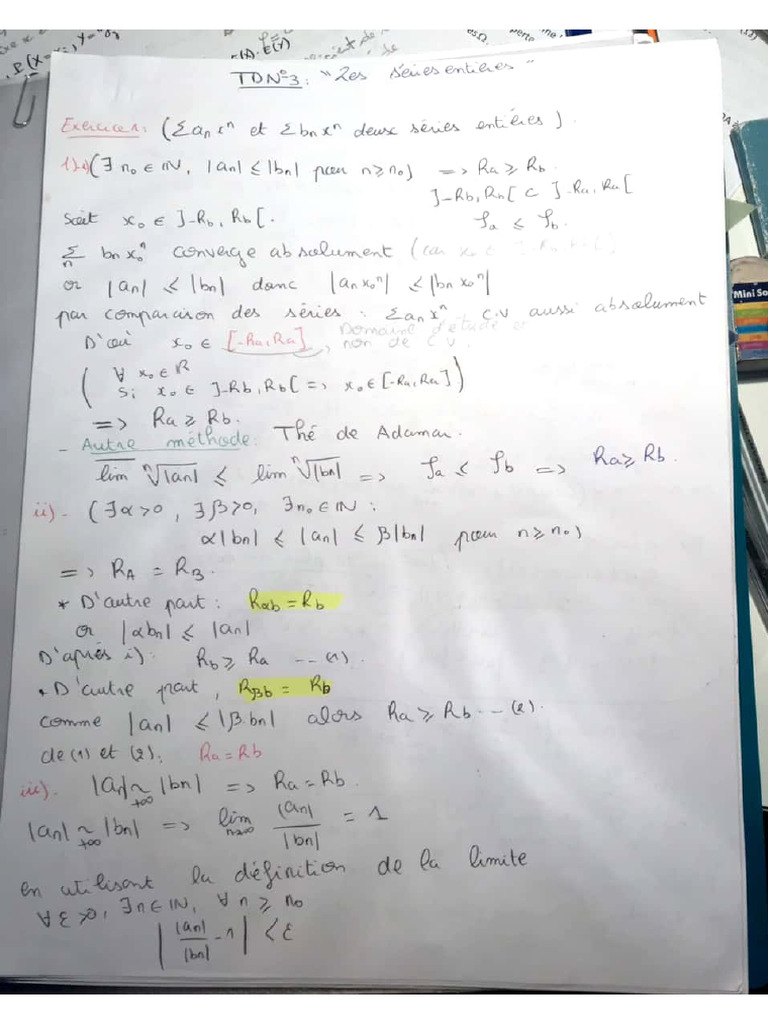 TD N°3: "Les séries entières"
Exercice 1: (Σ aₙ xⁿ et Σ bₙ xⁿ deux séries entières).
1) i) (∃ n₀ ∈ ℕ, |aₙ| ≤ |bₙ| pour n ≥ n₀) => Ra ≥ Rb
]-Rb, Rb[ ⊂ ]-Ra, Ra[
Soit x₀ ∈ ]-Rb, Rb[. ρa ≤ ρb.
Σₙ bₙ x₀ⁿ converge absolument (car x₀ ∈
or |aₙ| ≤ |bₙ| donc |aₙ x₀ⁿ| ≤ |bₙ x₀ⁿ|
par comparaison des séries : Σ aₙ xⁿ C.V aussi absolument
D'où x₀ ∈ [-Ra, Ra], Domaine d'étude
non de C.V.
( ∀ x₀ ∈ ℝ
Si x₀ ∈ ]-Rb, Rb[ => x₀ ∈ [-Ra, Ra] )
=> Ra ≥ Rb.
- Autre méthode: Thé de Adamar.
lim ⁿ√|aₙ| ≤ lim ⁿ√|bₙ| => ρa ≤ ρb => Ra ≥ Rb.
ii) - (∃ α > 0, ∃ β > 0, ∃ n₀ ∈ ℕ :
α|bₙ| ≤ |aₙ| ≤ β|bₙ| pour n ≥ n₀)
=> RA = RB.
* D'autre part : Rαb = Rb
or |αbₙ| ≤ |aₙ|
D'après i) : Rb ≥ Ra --- (1).
* D'autre part, Rβb = Rb
comme |aₙ| ≤ |β.bₙ| alors Ra ≥ Rb --- (2).
de (1) et (2): Ra = Rb
iii). |aₙ| ~ +∞ |bₙ| => Ra = Rb.
|aₙ| ~ +∞ |bₙ| => lim n→∞ |aₙ| / |bₙ| = 1
en utilisant la définition de la limite
∀ ε > 0, ∃ n ∈ ℕ, ∀ n ≥ n₀
| |aₙ| / |bₙ| - 1 | < ε
Mini So